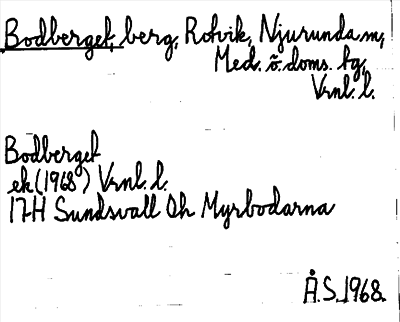 Bodberget, berg, Rotvik, Njurunda sn,
Med. ö. doms. tg,
Vrnl. l.
Bodberget
ek (1968) Vrnl. l.
17H Sundsvall 0h Myrbodarna
Å.S. 1968.